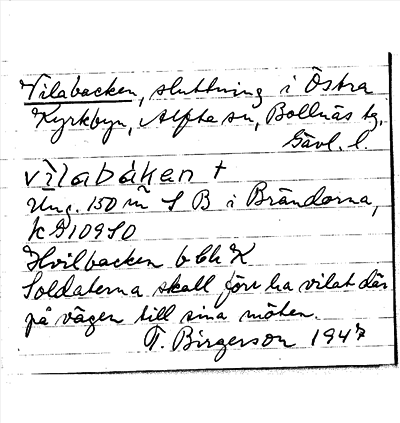 Vilabacken, sluttning i Östra
Kyrkbyn, Alfta sn, Bollnäs tg,
Gävl. l.
vìlabàken +
Ung. 150 m S B i Brändorna,
KG 109 SO
Hvilbacken bbh K
Soldaterna skall förr ha vilat där
på vägen till sina möten.
T. Birgerson 1947